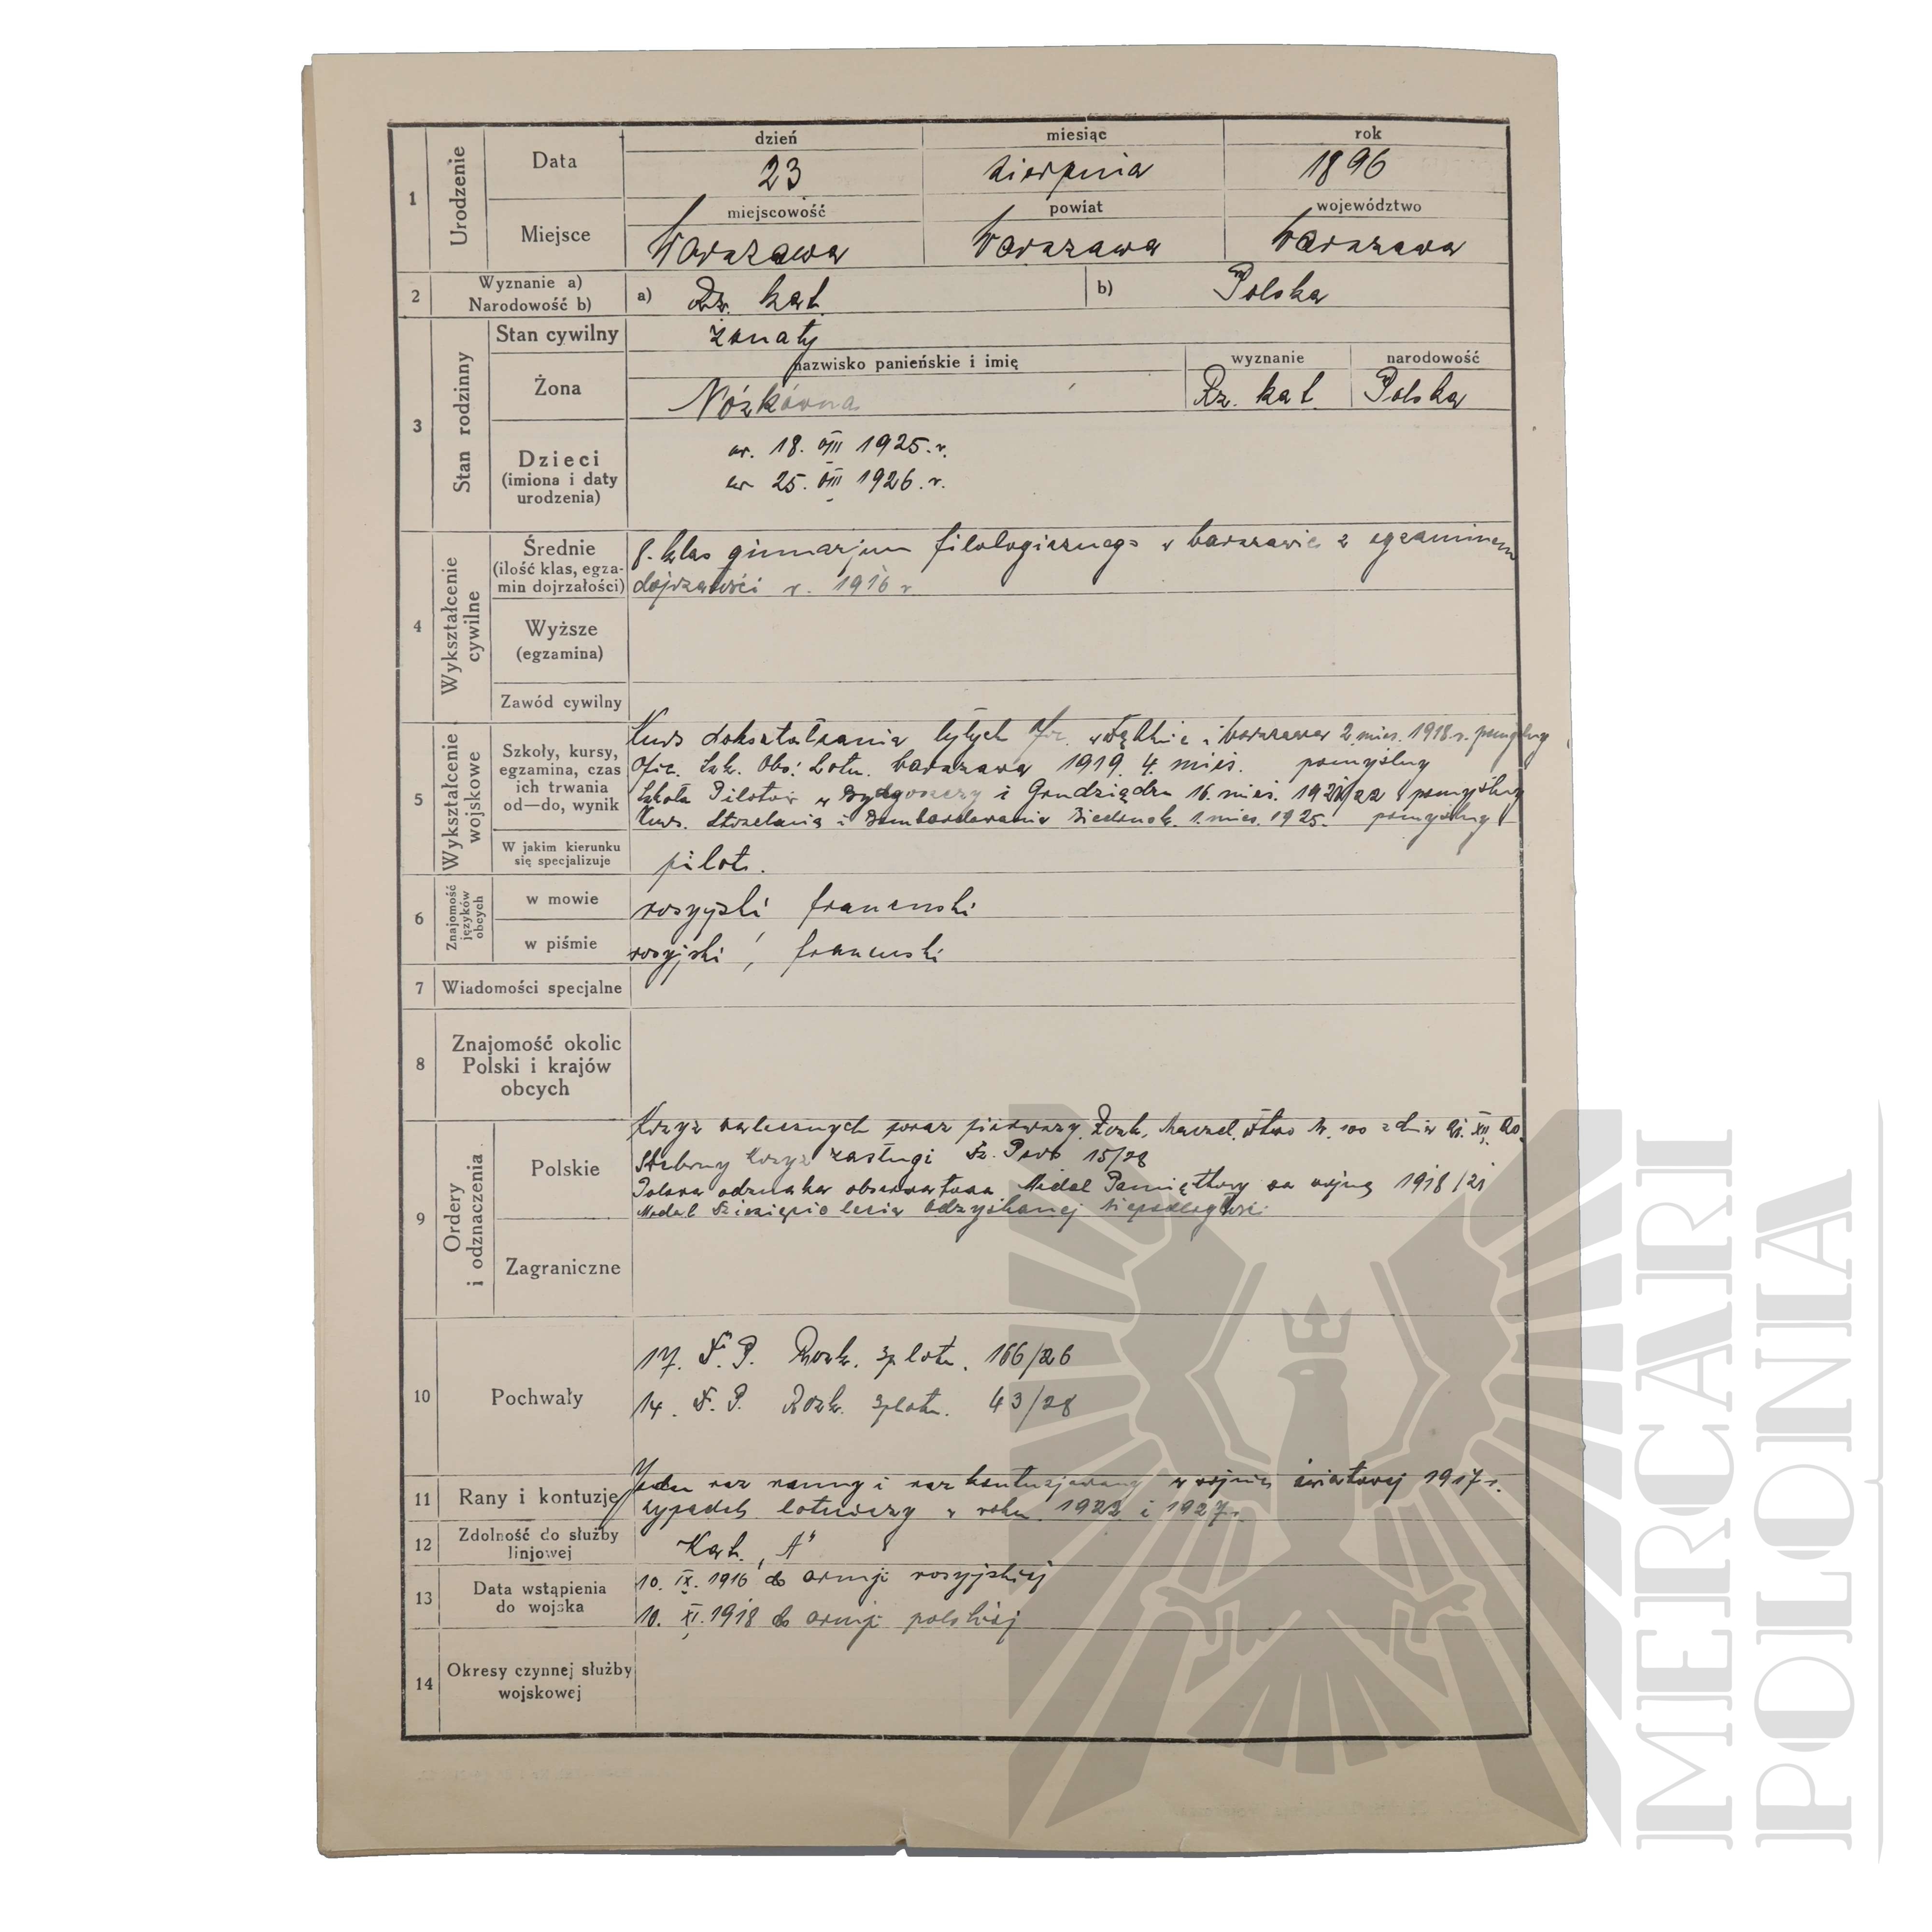 dzień miesiąc rok
1 Urodzenie Data 23 sierpnia 1896
miejscowość powiat województwo
Miejsce Warszawa Warszawa Warszawa
2 Wyznanie a) Narodowość b) a) Rz. kat. b) Polska
3 Stan rodzinny Stan cywilny żonaty
nazwisko panieńskie i imię wyznanie narodowość
Żona Nózkówna Rz. kat. Polska
Dzieci
(imiona i daty
urodzenia)
ur. 18. VIII 1925. r.
ur 25. VIII 1926. r.
4 Wykształcenie cywilne
Średnie
(ilość klas, egza-
min dojrzałości)
8. klas gimnazjum filologicznego w Warszawie z egzaminem
dojrzałości r. 1916 r
Wyższe
(egzamina)
Zawód cywilny
5 Wykształcenie wojskowe
Szkoły, kursy,
egzamina, czas
ich trwania
od—do, wynik
Kurs dokształcania byłych Ofic. i Warszawa 2. mies. 1918 r. pomyślny
Ofic. Szk. Obs. Lotn. Warszawa 1919. 4. mies. pomyślny
Szkoła Pilotów w Bydgoszczy i Grudziądzu 16. mies. pomyślny
Kurs. Strzelania i Bombardowania 1. mies. 1925. pomyślny
W jakim kierunku
się specjalizuje
pilot.
6 Znajomość języków obcych
w mowie rosyjski, francuski
w piśmie rosyjski, francuski
7 Wiadomości specjalne
8 Znajomość okolic
Polski i krajów
obcych
9 Ordery i odznaczenia
Polskie
Krzyż walecznych poraz pierwszy Rozk. Naczel. Nr. 100 z dnia XII. 20.
Srebrny krzyż zasługi Dz. Pers 15/28
Polowa odznaka obserwatora Medal Pamiątkowy za wojnę 1918/21
Medal Dziesięciolecia odzyskanej Niepodległości.
Zagraniczne
10 Pochwały
17. D. P. Rozk. 3 p lotn. 166/26
14. D. P. Rozk. 3 p lotn. 43/28
11 Rany i kontuzje
Jeden raz ranny i raz kontuzjowany w wojnie światowej 1917 r.
wypadek lotniczy w roku 1922 i 1927 r.
12 Zdolność do służby
linjowej
Kat. „A”
13 Data wstąpienia
do wojska
10. IX. 1916 do armji rosyjskiej
10. XI. 1918 do armji polskiej
14 Okresy czynnej służby
wojskowej
IMERCARI
POLONIA